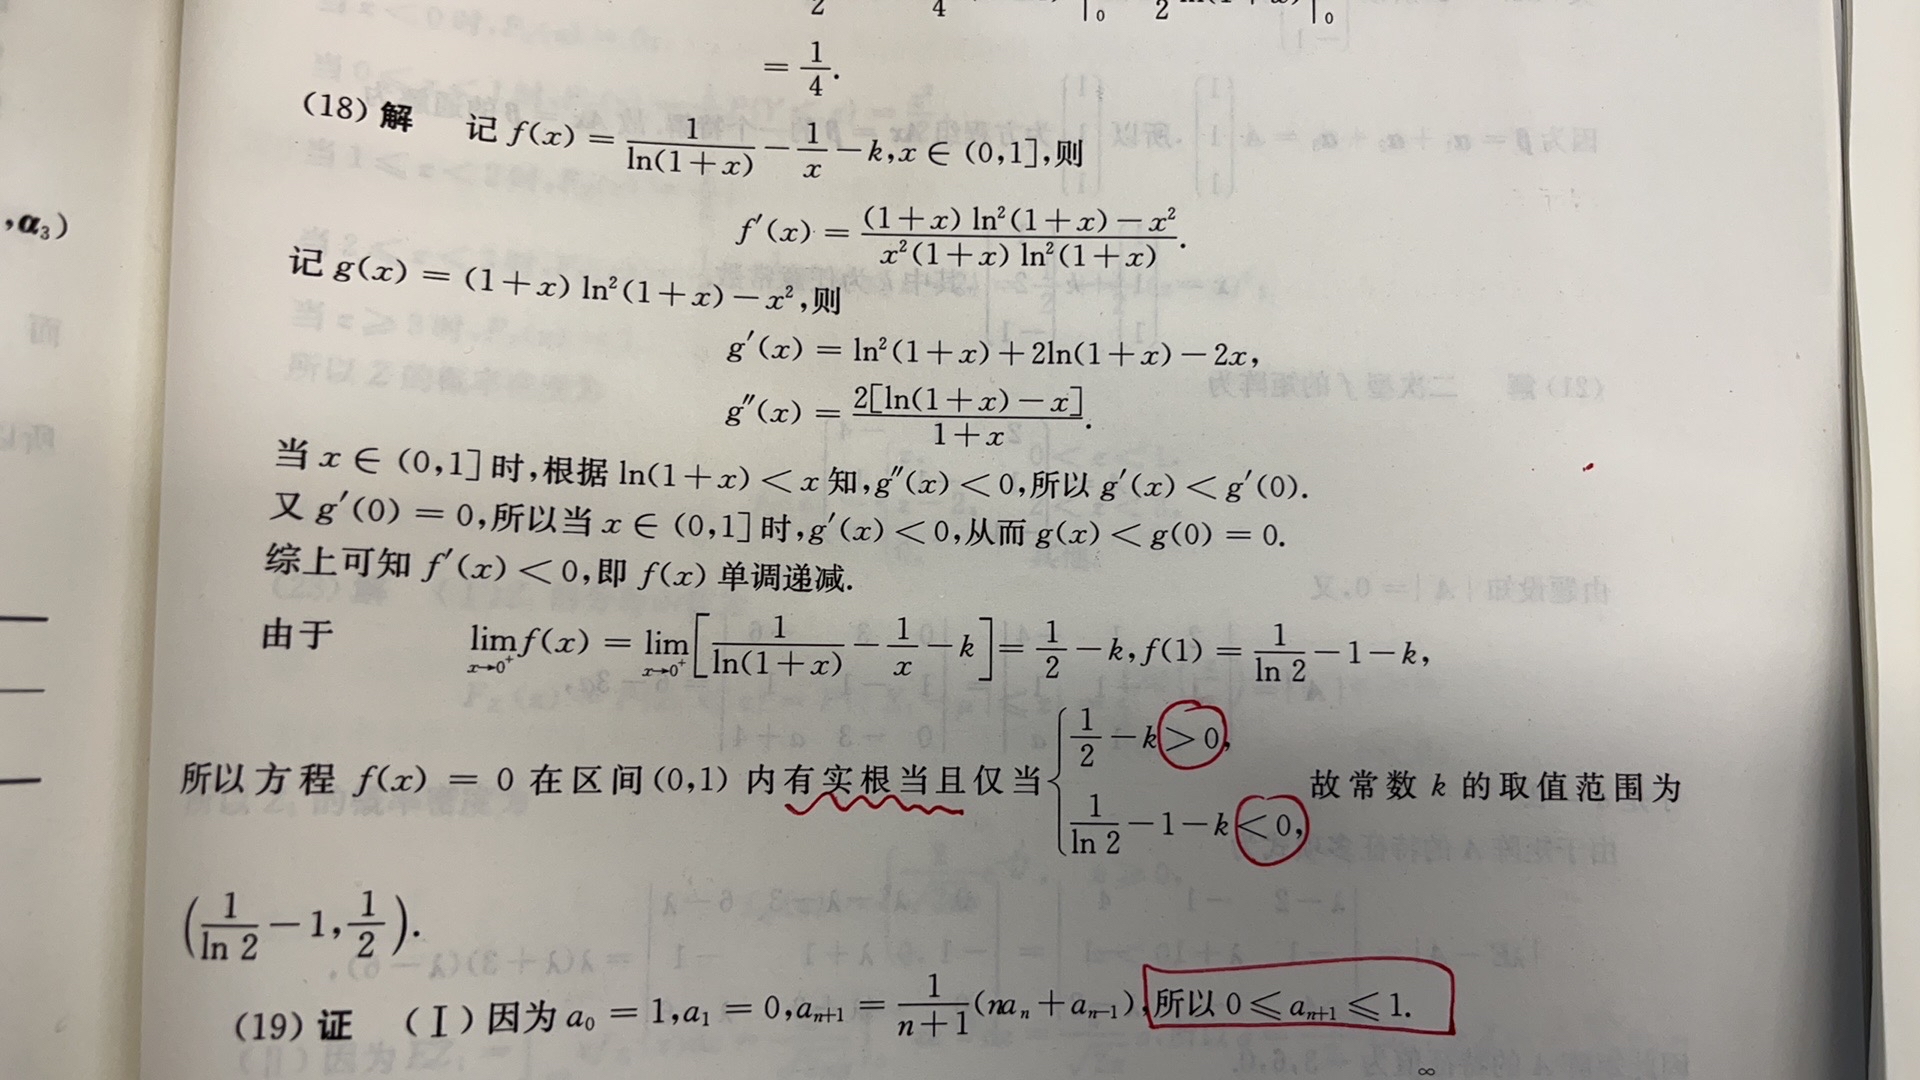 = 1/4.
(18) 解 记 f(x) = 1/ln(1+x) − 1/x − k, x ∈ (0,1], 则
,α₃)
f′(x) = ((1+x) ln²(1+x) − x²)/(x²(1+x) ln²(1+x)).
记 g(x) = (1+x) ln²(1+x) − x², 则
g′(x) = ln²(1+x) + 2ln(1+x) − 2x,
g″(x) = 2[ln(1+x) − x]/(1+x).
当 x ∈ (0,1] 时, 根据 ln(1+x) < x 知, g″(x) < 0, 所以 g′(x) < g′(0).
又 g′(0) = 0, 所以当 x ∈ (0,1] 时, g′(x) < 0, 从而 g(x) < g(0) = 0.
综上可知 f′(x) < 0, 即 f(x) 单调递减.
由于 lim_{x→0⁺} f(x) = lim_{x→0⁺} [1/ln(1+x) − 1/x − k] = 1/2 − k, f(1) = 1/ln 2 − 1 − k,
所以方程 f(x) = 0 在区间 (0,1) 内有实根当且仅当 { 1/2 − k > 0, 1/ln 2 − 1 − k < 0, 故常数 k 的取值范围为
(1/ln 2 − 1, 1/2).
(19) 证 (Ⅰ) 因为 a₀ = 1, a₁ = 0, aₙ₊₁ = 1/(n+1) (naₙ + aₙ₋₁), 所以 0 ≤ aₙ₊₁ ≤ 1.
∞